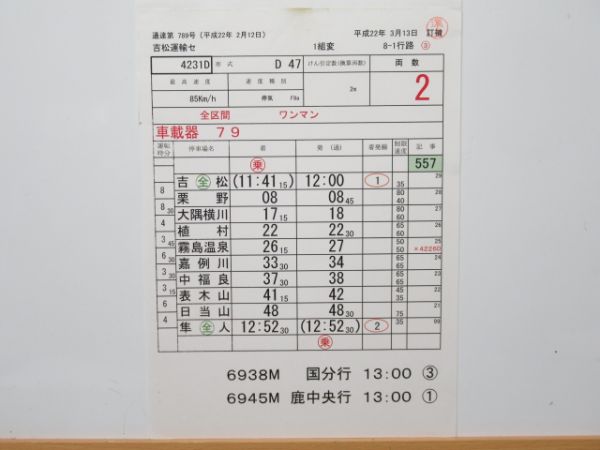 達第 789号 (平成22年 2月12日)
平成22年 3月13日 訂補
吉松運輸セ 1組変 8-1行路 ③
4231D 形式 D 47 けん引定数(換算両数) 両数
最高速度 速度種別 2m 2
85Km/h 停気 F9a
全区間 ワンマン
車載器 79
運転時分 停車場名 着 発 (通) 着発線 制限速度 記事
乗 557
吉 全 松 (11:41 15) 12:00 1 35 29
8 栗野 08 08 45 80 40 28
8 30 大隅横川 17 15 18 80 60 27
4 植村 22 22 30 65 60 26
3 45 霧島温泉 26 15 27 50 50 25 ×42260
6 30 嘉例川 33 30 34 65 65 24
3 30 中福良 37 30 38 65 65 23
3 15 表木山 41 15 42 65 45 22
6 日当山 48 48 30 75 21
4 隼 全 人 12:52 30 (12:52 30) 2 35 99
乗
6938M 国分行 13:00 ③
6945M 鹿中央行 13:00 ①